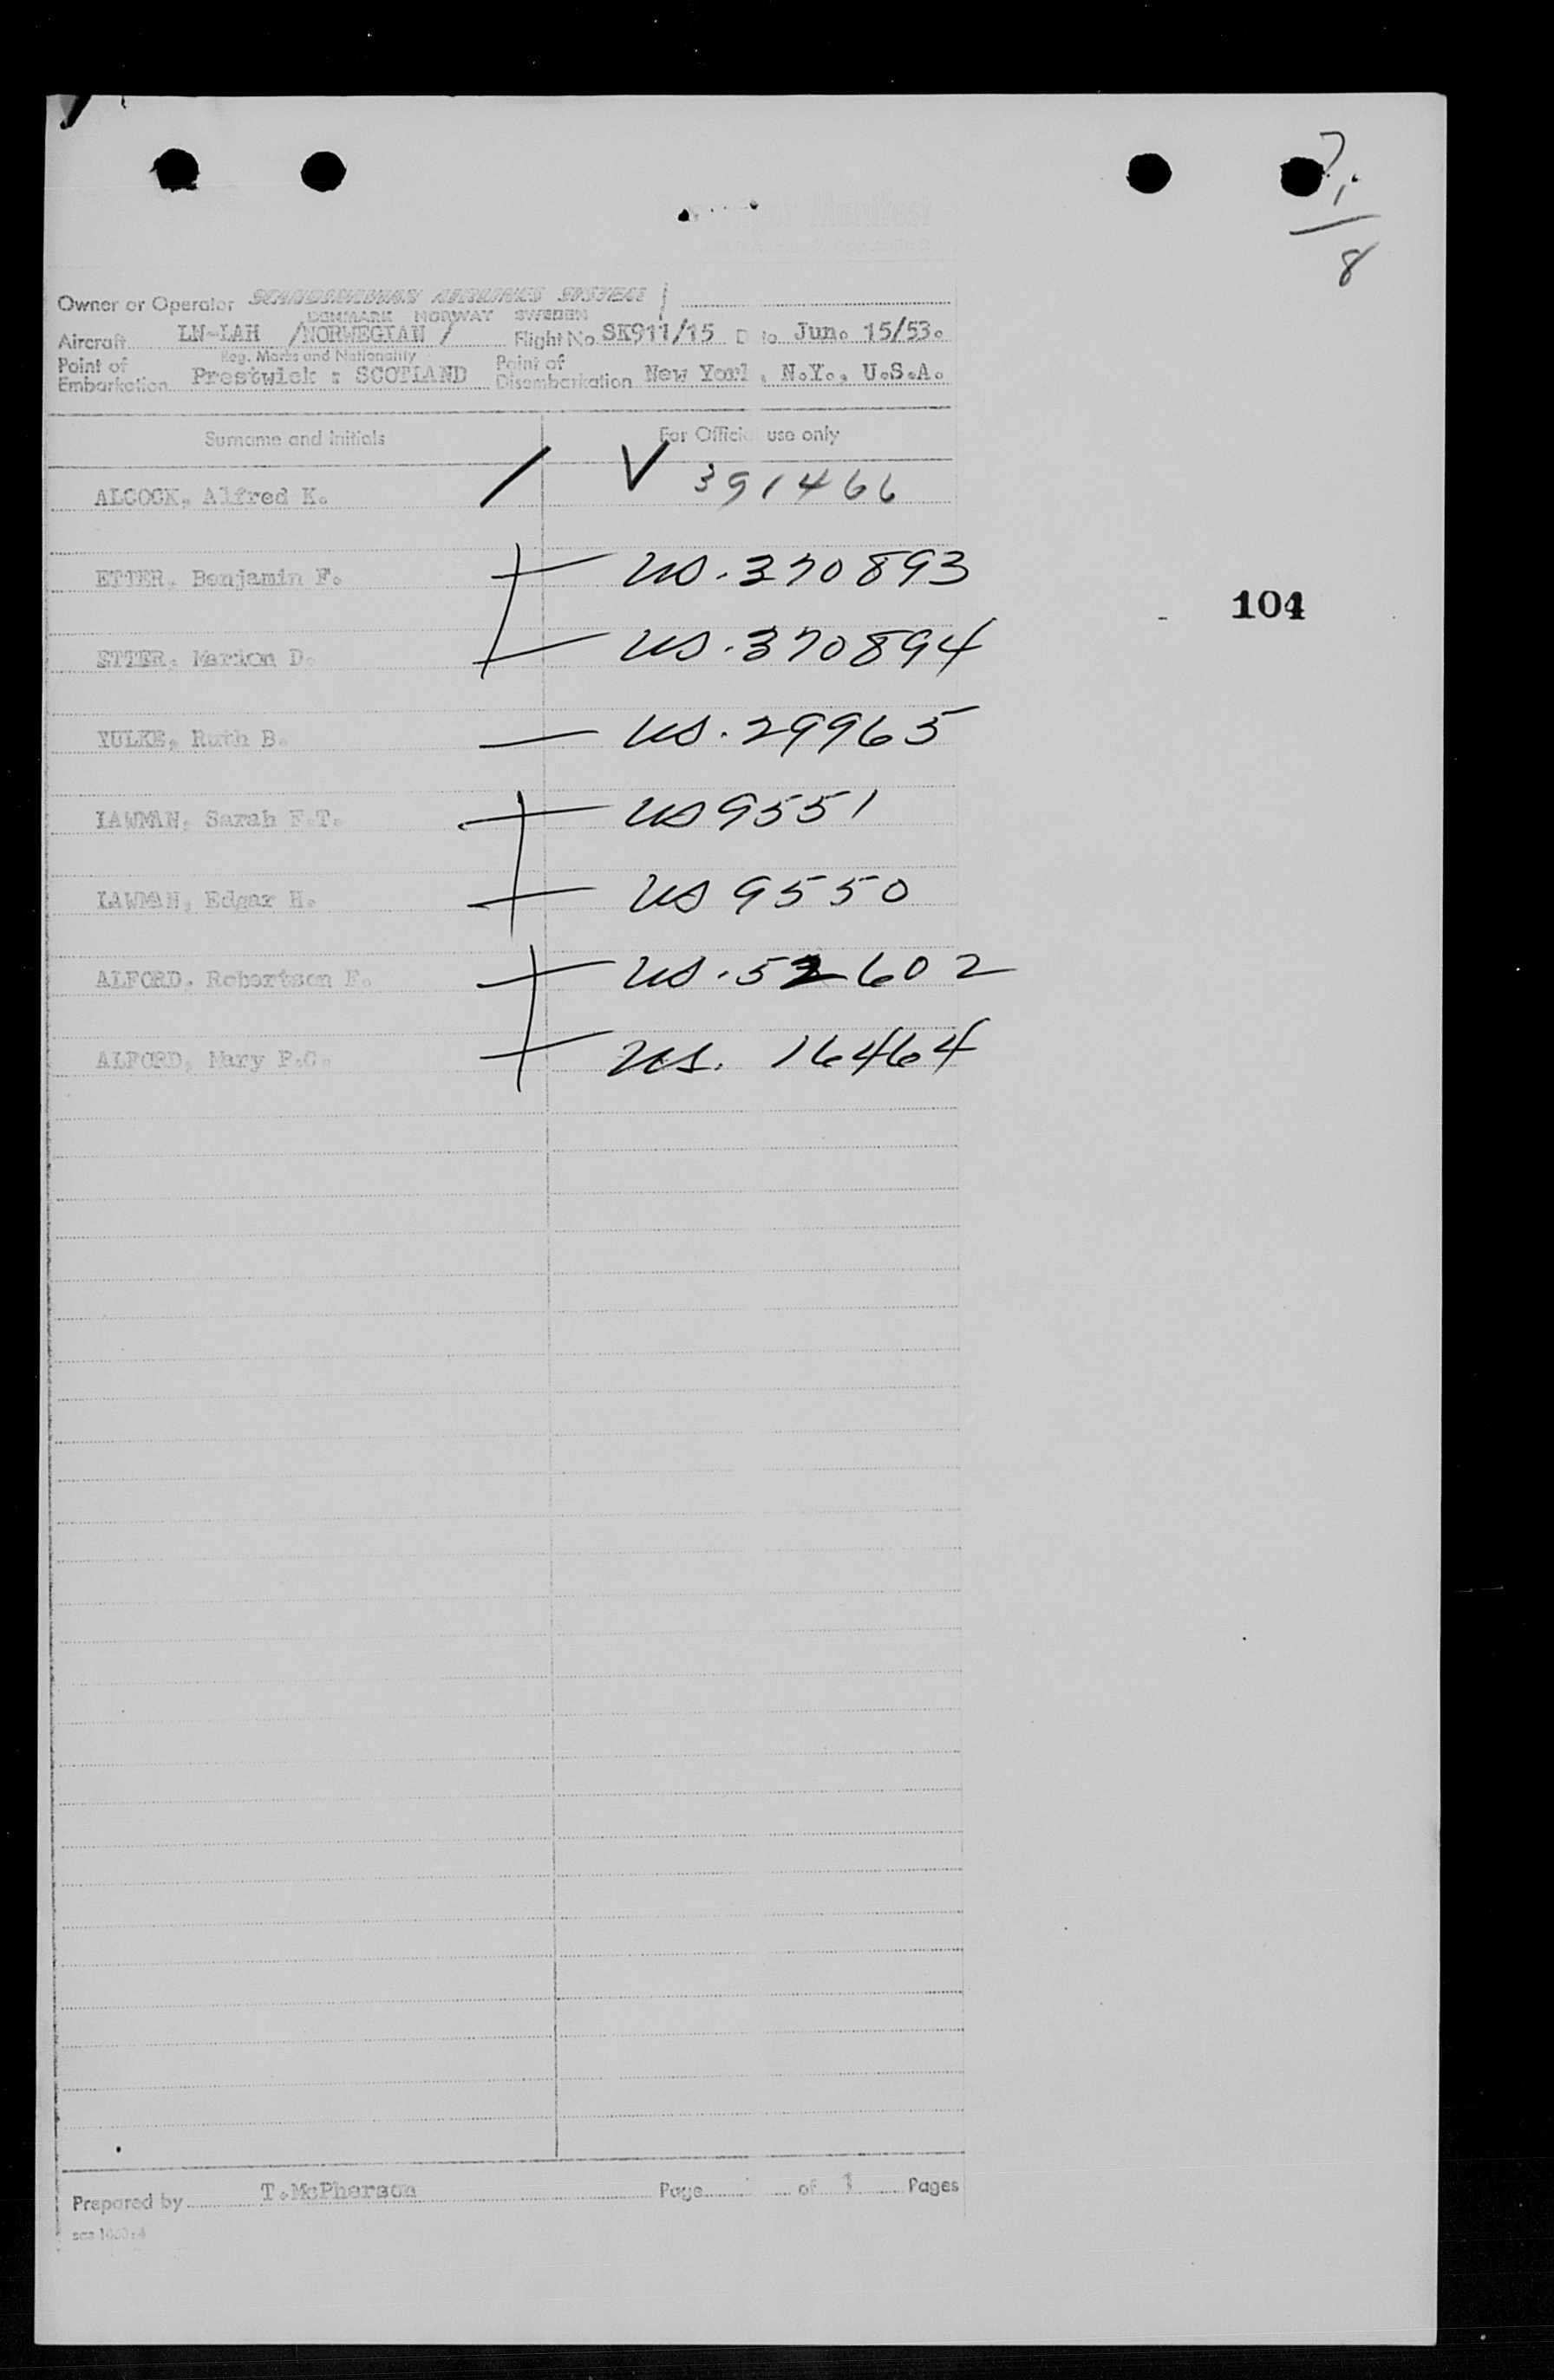 7
1
8
Owner or Operator SCANDINAVIAN AIRLINES SYSTEM
DENMARK NORWAY SWEDEN
Aircraft LN-LAH /NORWEGIAN/ Flight No. SK911/15 D te Jun. 15/53.
Reg. Marks and Nationality
Point of Embarkation Prestwick : SCOTLAND Point of Disembarkation New York, N.Y., U.S.A.
Surname and Initials For Official use only
ALCOCK, Alfred K. / V 391466
ETTER, Benjamin F. US.370893
104
ETTER, Marion D. US.370894
YULKE, Ruth B. US.29965
LAWMAN, Sarah F.T. US 9551
LAWMAN, Edgar H. US 9550
ALFORD, Robertson F. US.52602
ALFORD, Mary F.C. US. 16464
Prepared by T.McPherson Page of 1 Pages